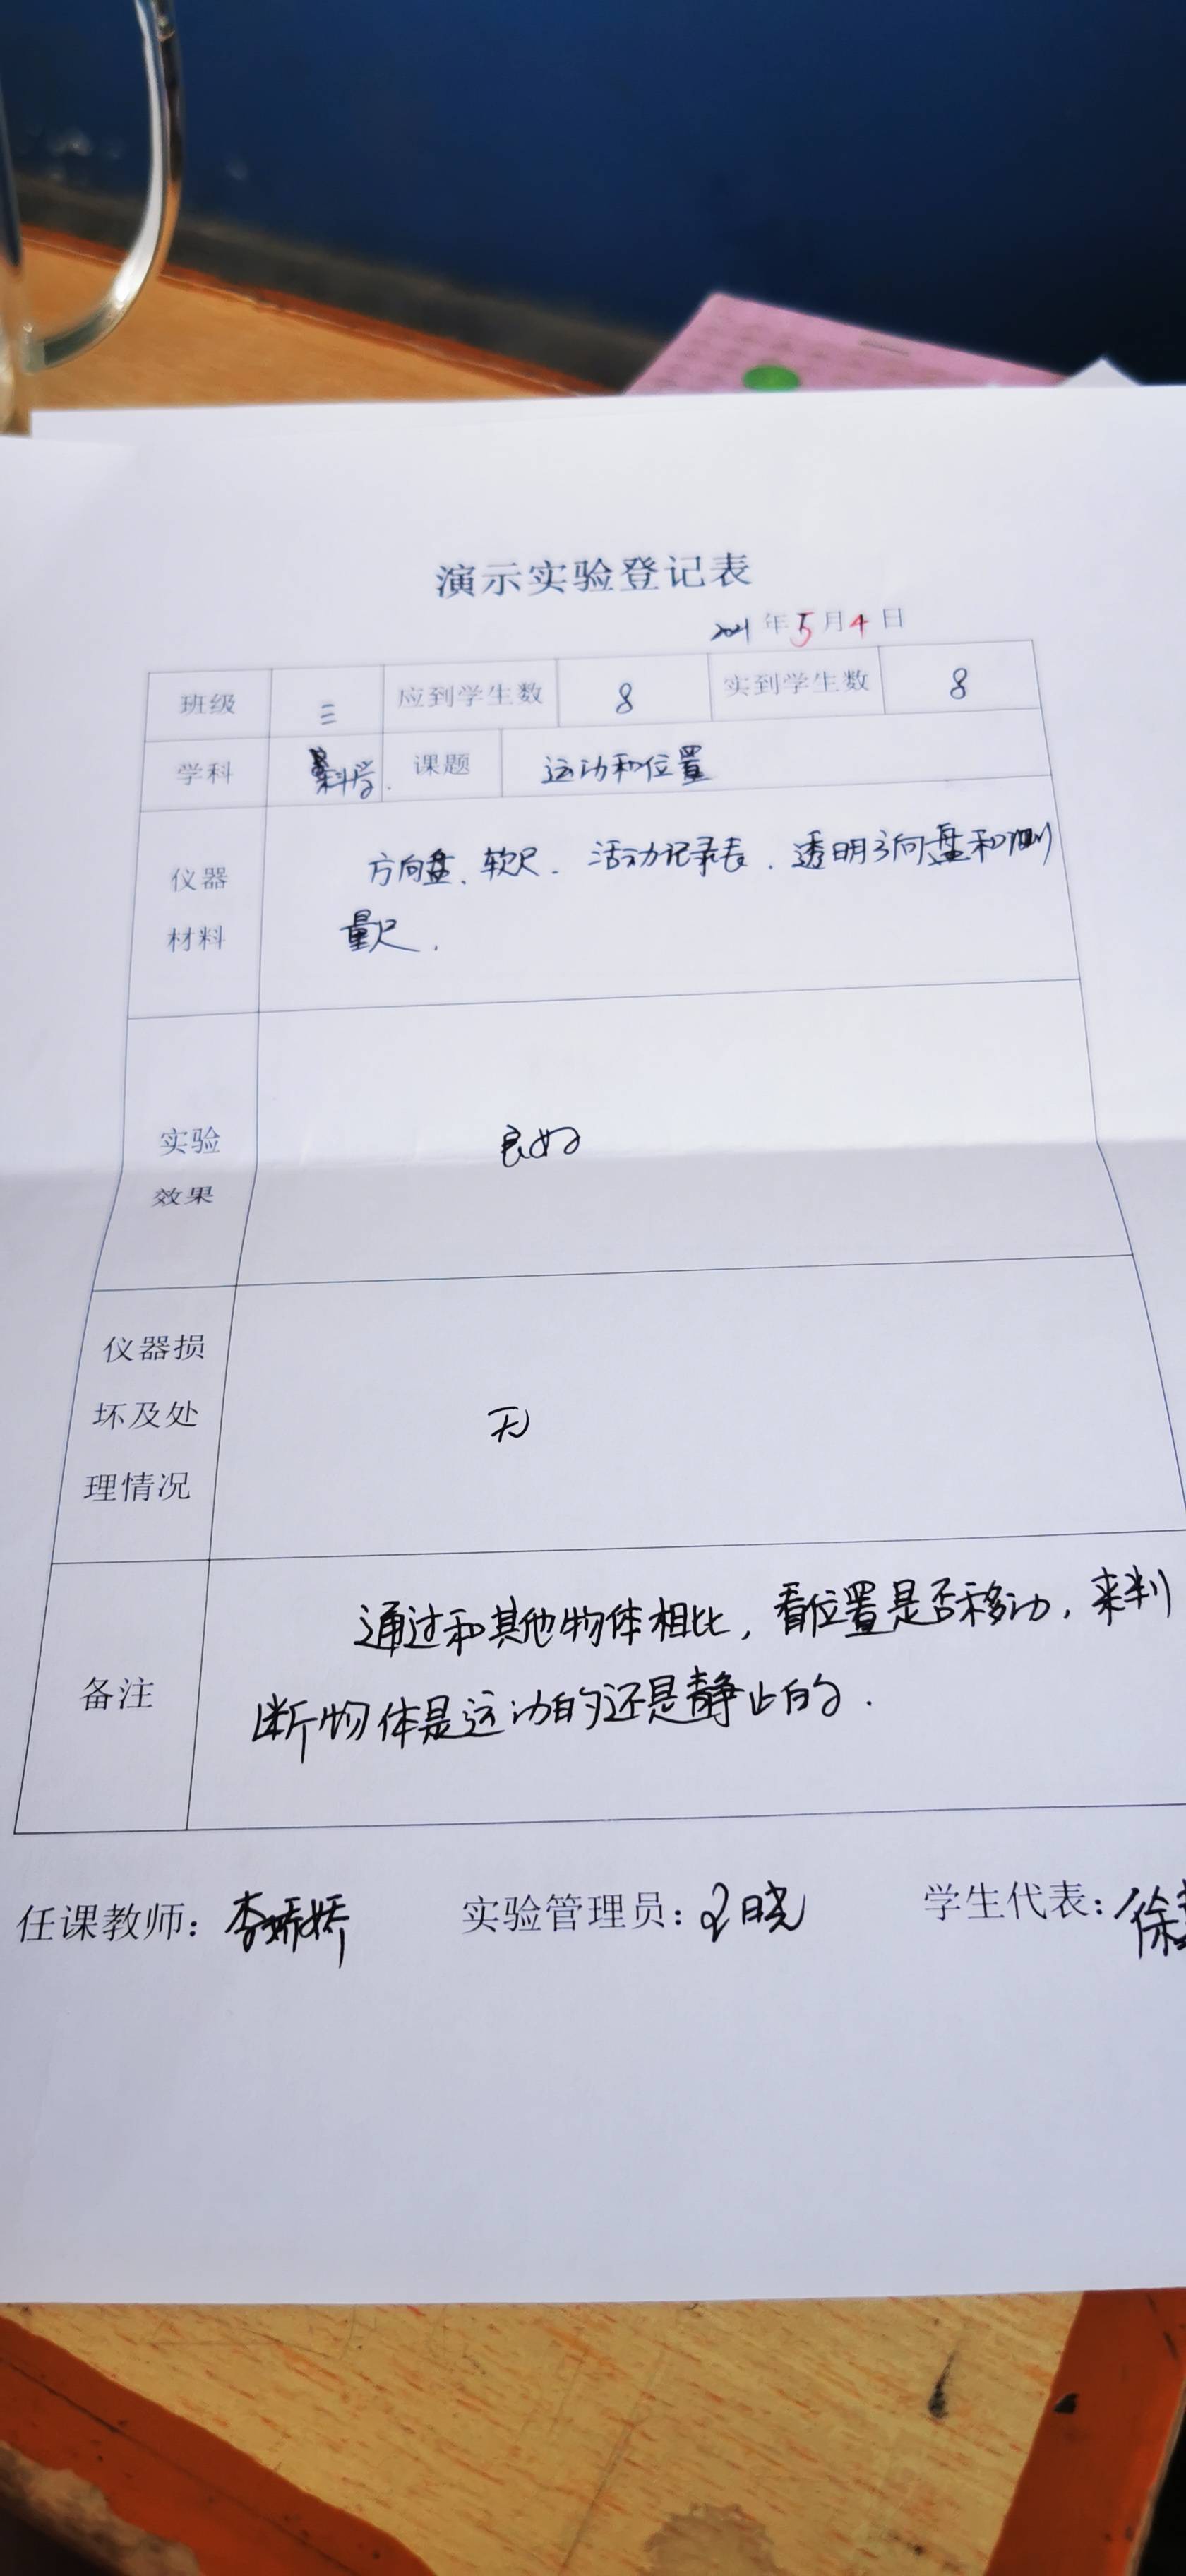 演示实验登记表
2021年5月4日
班级 三 应到学生数 8 实到学生数 8
学科 科学. 课题 运动和位置
仪器材料 方向盘、软尺、活动记录表、透明方向盘和测
量尺.
实验效果 良好
仪器损坏及处理情况 无
备注 通过和其他物体相比，看位置是否移动，来判
断物体是运动的还是静止的.
任课教师：李娇娇 实验管理员：王晓 学生代表：徐